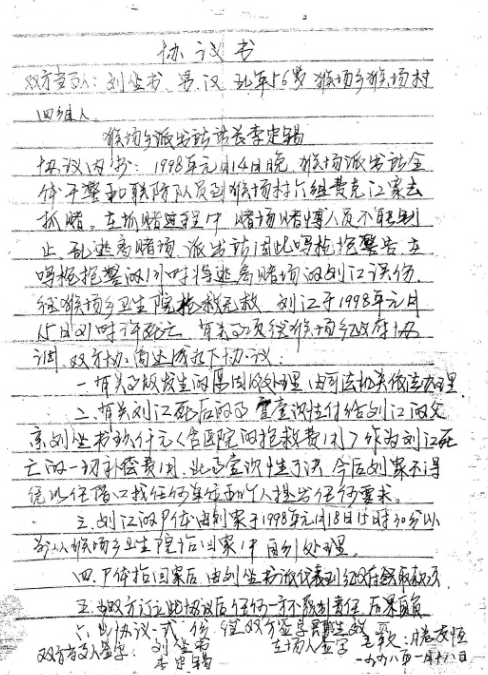 协议书
双方当事人：刘坐书、男、汉、现年56岁猴场乡猴场村
四组人。
猴场乡派出所所长李忠锡
协议内书：1998年元月14日晚，猴场派出所全
体干警和联防队员到猴场村六组费克江家去
抓赌。在抓赌过程中，赌场赌博人员不听制
止，乱逃离赌场，派出所因此鸣枪抢警告，在
鸣枪抢警的同时将逃离赌场的刘江误伤，
经猴场乡卫生院抢救无效，刘江于1998年元月
15日 时许死亡，有关事项经猴场乡政府协
调，双方协商达成如下协议：
一、有关事故发生的原因及处理，由司法机关依法办理。
二、有关刘江死后的事宜壹次性付给刘江的父
亲刘坐书 仟元（含医院的抢救费用）作为刘江死
亡的一切补偿费用，此事壹次性了决，今后刘家不得
任借口找任何单位和个人提出任何要求。
三、刘江的尸体由刘家于1998年元月18日15时30分以
前从猴场乡卫生院抬回家中自行处理。
四、尸体抬回家后，由刘坐书派代表到 领取款项。
五、当双方订立此协议后任何一方不 责任，后果自负
六、此协议一式 份，经双方签字 生效
双方当事人签字：刘坐书 在场人签字
李忠锡 一九九八年一月十八日